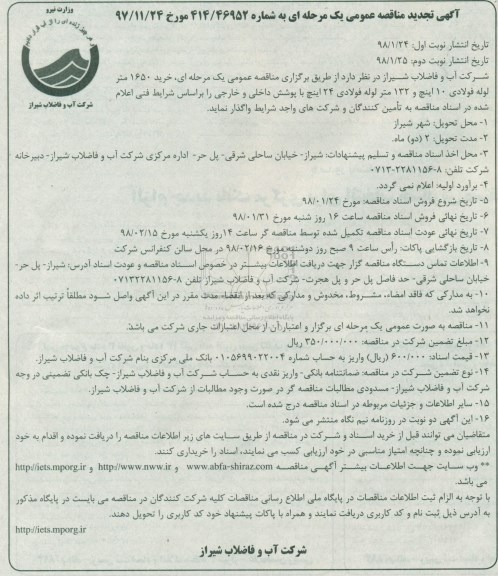 آگهی تجدید مناقصه عمومی یک مرحله ای به شماره ۴۱۴/۴۶۹۵۲ مورخ ۹۷/۱۱/۲۴
وزارت نیرو
شرکت آب و فاضلاب شیراز
تاریخ انتشار نوبت اول: ۹۸/۱/۲۴
تاریخ انتشار نوبت دوم: ۹۸/۱/۲۵
شرکت آب و فاضلاب شیراز در نظر دارد از طریق برگزاری مناقصه عمومی یک مرحله ای، خرید ۱۶۵۰ متر
لوله فولادی ۱۰ اینچ و ۱۳۲ متر لوله فولادی ۲۴ اینچ با پوشش داخلی و خارجی را براساس شرایط فنی اعلام
شده در اسناد مناقصه به تأمین کنندگان و شرکت های واجد شرایط واگذار نماید.
۱- محل تحویل: شهر شیراز
۲- مدت تحویل: ۲ (دو) ماه.
۳- محل اخذ اسناد مناقصه و تسلیم پیشنهادات: شیراز- خیابان ساحلی شرقی- پل حر- اداره مرکزی شرکت آب و فاضلاب شیراز- دبیرخانه
شرکت تلفن: ۸-۰۷۱۳۲۲۸۱۱۵۶
۴- برآورد اولیه: اعلام نمی گردد.
۵- تاریخ شروع فروش اسناد مناقصه: مورخ ۹۸/۰۱/۲۴
۶- تاریخ نهائی فروش اسناد مناقصه ساعت ۱۶ روز شنبه مورخ ۹۸/۰۱/۳۱
۷- تاریخ نهائی عودت اسناد مناقصه تکمیل شده توسط مناقصه گر ساعت ۱۴روز یکشنبه مورخ ۹۸/۰۲/۱۵
۸- تاریخ بازگشایی پاکات: رأس ساعت ۹ صبح روز دوشنبه مورخ ۹۸/۰۲/۱۶ در محل سالن کنفرانس شرکت
۹- اطلاعات تماس دستگاه مناقصه گزار جهت دریافت اطلاعات بیشتر در خصوص اسناد مناقصه و عودت اسناد آدرس: شیراز- پل حر-
خیابان ساحلی شرقی- حد فاصل پل حر و پل هجرت- شرکت آب و فاضلاب شیراز تلفن ۸-۰۷۱۳۲۲۸۱۱۵۶
۱۰- به مدارکی که فاقد امضاء، مشروط، مخدوش و مدارکی که بعد از انقضاء مدت مقرر در این آگهی واصل شود مطلقاً ترتیب اثر داده
نخواهد شد.
۱۱- مناقصه به صورت عمومی یک مرحله ای برگزار و اعتبار آن از محل اعتبارات جاری شرکت می باشد.
۱۲- مبلغ تضمین شرکت در مناقصه: ۳۵۰/۰۰۰/۰۰۰ ریال
۱۳- قیمت اسناد: ۶۰۰/۰۰۰ (ریال) واریز به حساب شماره ۰۱۰۵۶۹۹۰۲۲۰۰۴ بانک ملی مرکزی بنام شرکت آب و فاضلاب شیراز.
۱۴- نوع تضمین شرکت در مناقصه: ضمانتنامه بانکی- واریز نقدی به حساب شرکت آب و فاضلاب شیراز- چک بانکی تضمینی در وجه
شرکت آب و فاضلاب شیراز- مسدودی مطالبات مناقصه گر در صورت وجود مطالبات از شرکت آب و فاضلاب شیراز.
۱۵- سایر اطلاعات و جزئیات مربوطه در اسناد مناقصه درج شده است.
۱۶- این آگهی دو نوبت در روزنامه نیم نگاه منتشر می شود.
متقاضیان می توانند قبل از خرید اسناد و شرکت در مناقصه از طریق سایت های زیر اطلاعات مناقصه را دریافت نموده و اقدام به خود
ارزیابی نموده و چنانچه امتیاز مناسبی در خود ارزیابی کسب می نمایند، اسناد را خریداری کنند.
** وب سایت جهت اطلاعات بیشتر آگهی مناقصه www.abfa-shiraz.com و http://www.nww.ir و http://iets.mporg.ir
می باشد.
با توجه به الزام ثبت اطلاعات مناقصات در پایگاه ملی اطلاع رسانی مناقصات کلیه شرکت کنندگان در مناقصه می بایست در پایگاه مذکور
به آدرس ذیل ثبت نام و کد کاربری دریافت نمایند و همراه با پاکات پیشنهاد خود کد کاربری را تحویل دهند.
http://iets.mporg.ir
شرکت آب و فاضلاب شیراز